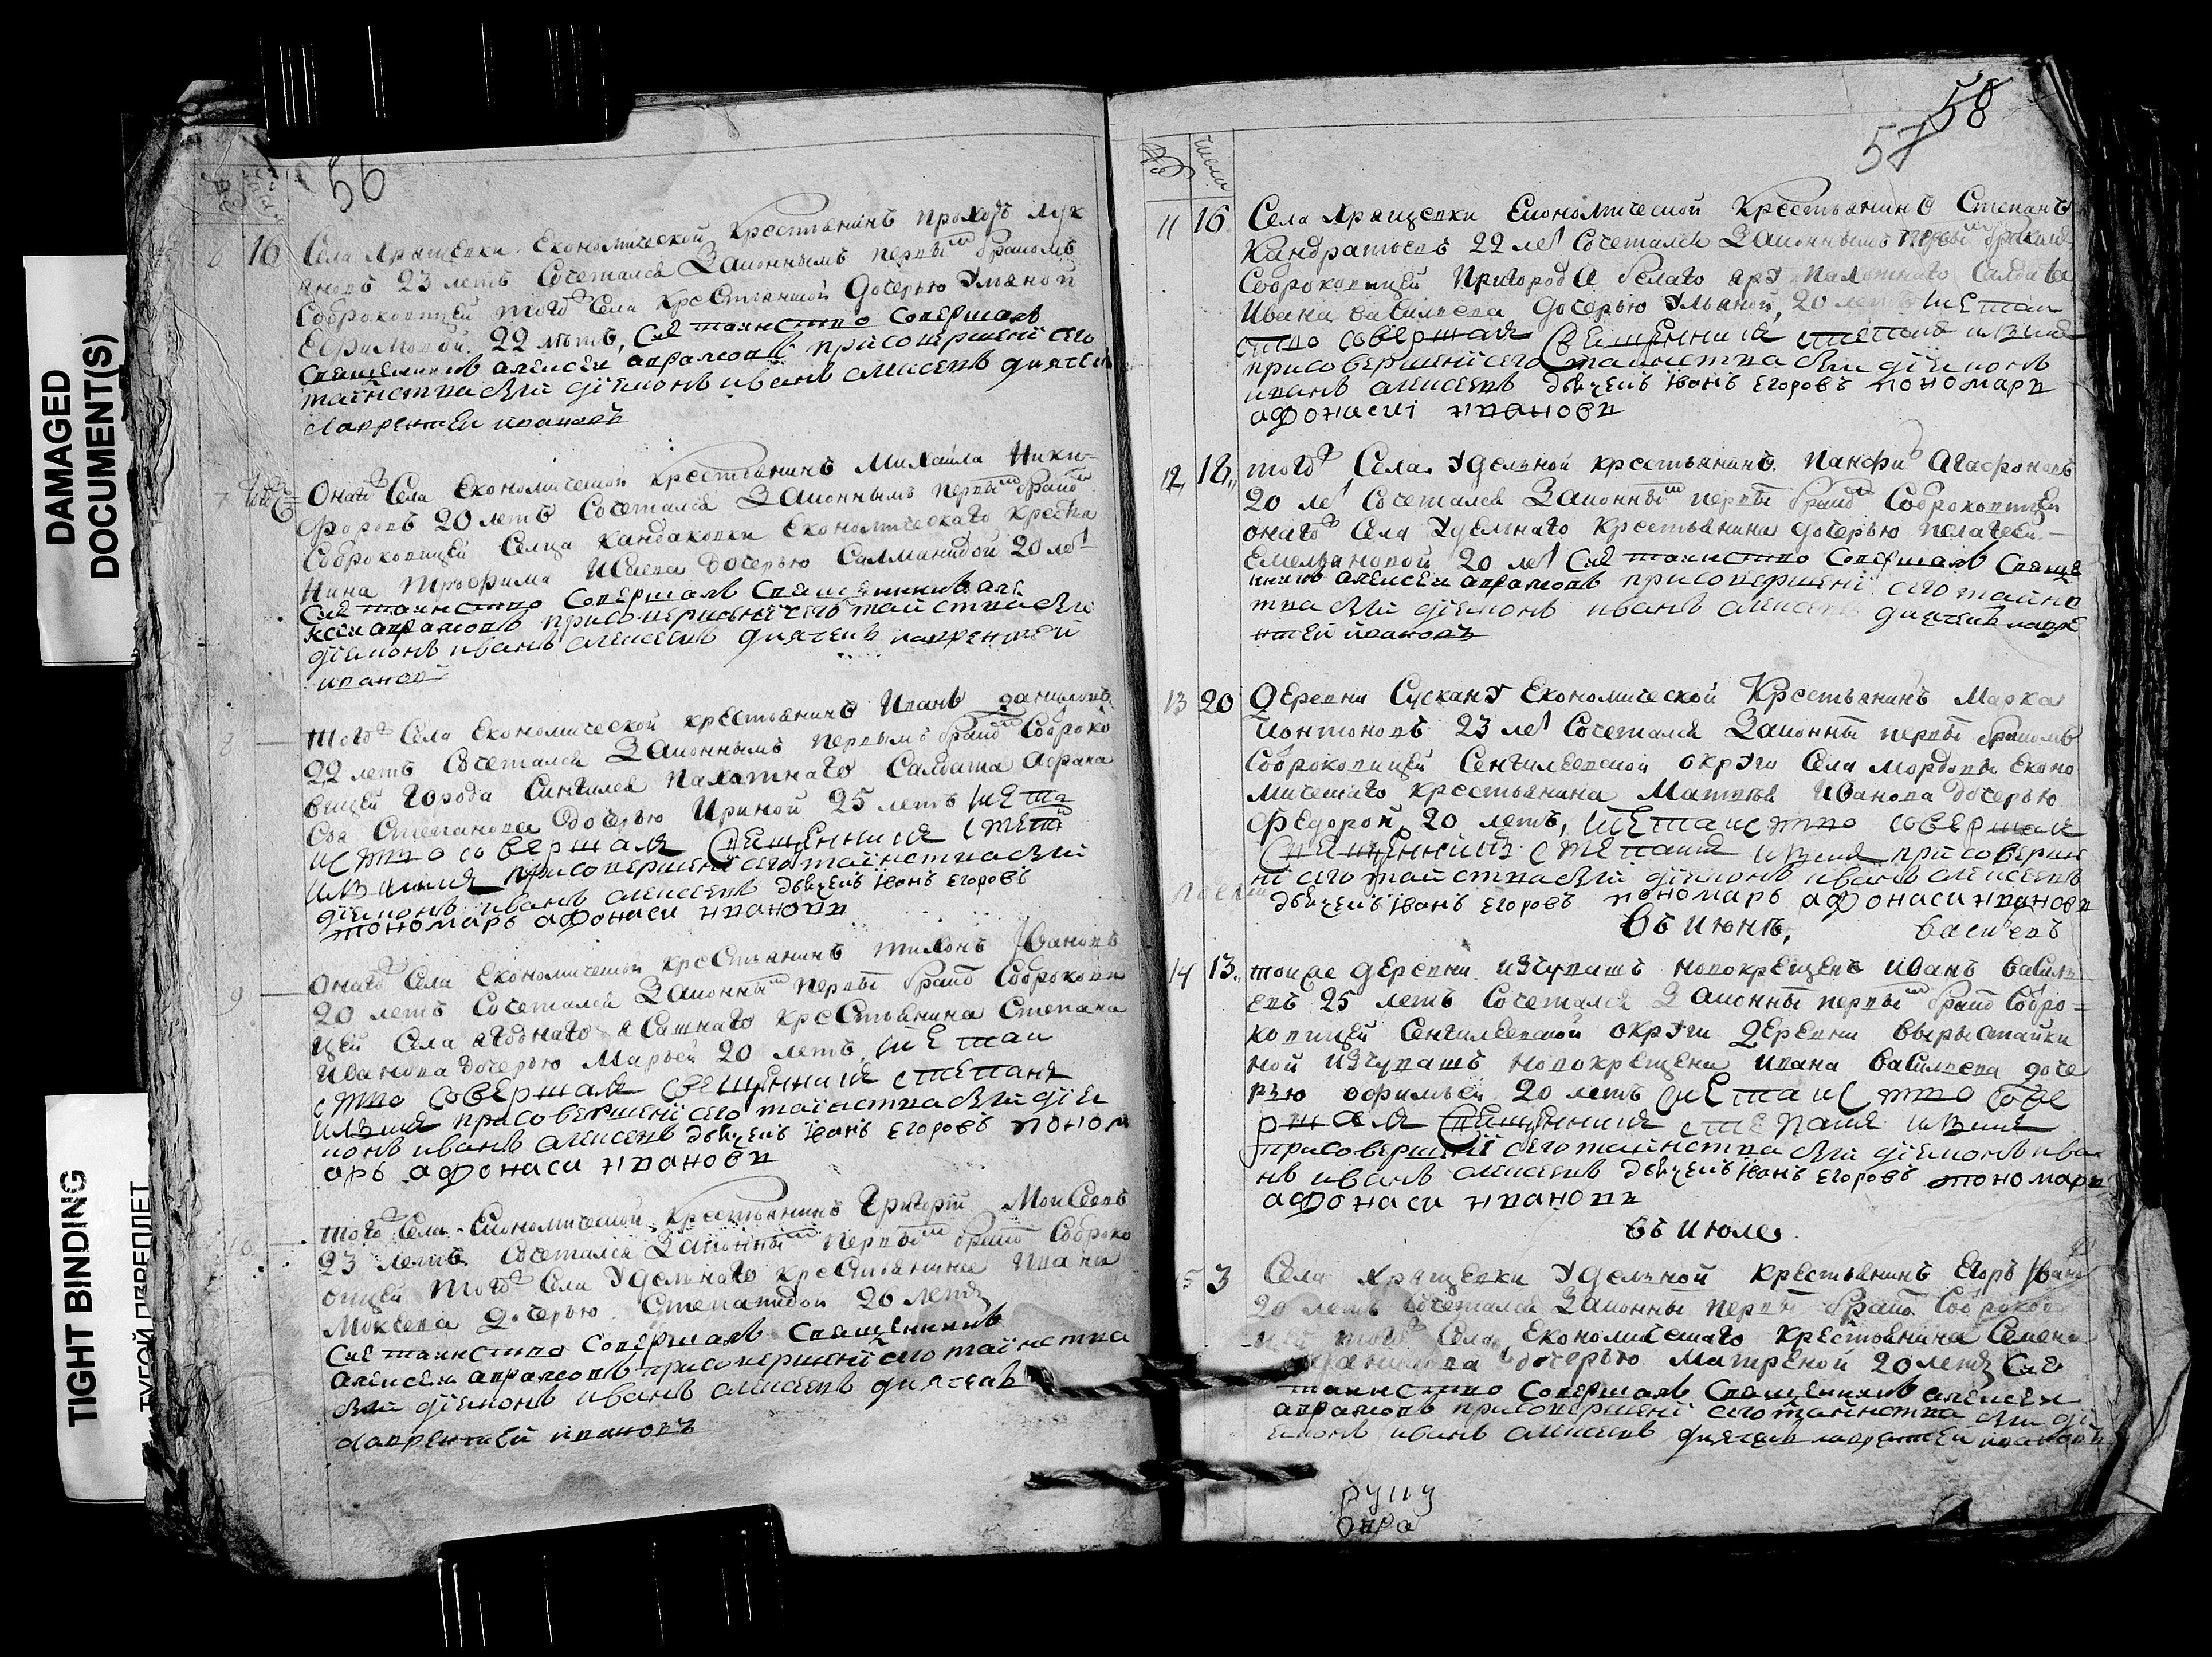 DAMAGED
DOCUMENT(S)
TIGHT BINDING
ТУГОЙ ПЕРЕПЛЕТ
56
6 16 Села Хрящевки Економической крестьянинъ Прохоръ Лук
яновъ 23 летъ Сочетался Законнымъ первымъ бракомъ
Соброковицей того Села крестьянской дочерью Ульяной
Ефимовой 22 летъ, Сие таинство Совершалъ
Священникъ алексеи аврамовъ присовершенїи сего
таинства были дїаконъ иванъ алексеевъ дьячекъ
лаврентеи ивановъ
7 Онаго Села Економической крестьянинъ Михаила Ники-
форовъ 20 летъ Сочетался Законнымъ первымъ бракомъ
Соброковицей Селца Кандаковки Економическаго крестья
нина Трофима Исаева дочерью Саламанидой 20 лет
Сие таинство Совершалъ Священникъ але
ксеи аврамовъ присовершенїи сего таинства были
дїаконъ иванъ алексеевъ дьячекъ лаврентей
ивановъ
8 Того Села Економической крестьянинъ Иванъ Даниловъ
22 летъ Сочетался Законнымъ первымъ бракомъ Соброко
вицей Города Сингилея Пахатнаго Салдата Абрама
Степанова дочерью Ириной 25 летъ сие та
инство совершалъ священникъ степанъ
присовершенїи сего таинства были
дїаконъ иванъ алексеевъ дьячекъ Іванъ Егоровъ
пономарь афонаси ивановъ
9 Онаго Села Економической крестьянинъ Тихонъ Ивановъ
20 летъ Сочетался Законнымъ первымъ бракомъ Соброкови
цей Села Ягоднаго Ясашнаго крестьянина Степана
Иванова дочерью Марьей 20 летъ сие таи
ство совершалъ священникъ степанъ
присовершенїи сего таинства были дїа
конъ иванъ алексеевъ дьячекъ Іванъ Егоровъ поном
арь афонаси ивановъ
10 Того Села Економической крестьянинъ Григорїй Моисеевъ
23 летъ Сочетался Законнымъ первымъ бракомъ Соброко
вицей того Села Удельнаго крестьянина Ивана
Мокеева дочерью Степанидой 20 летъ
Сие таинство Совершалъ Священникъ
алексеи аврамовъ присовершенїи сего таинства
были дїаконъ иванъ алексеевъ дьячекъ
лаврентей ивановъ
57 58
11 16 Села Хрящевки Економической Крестьянинъ Степанъ
Кандратьевъ 22 лет Сочетался Законнымъ первымъ бракомъ
Соброковицей Пригорода белаго яру Пахатнаго Салдата
Ивана васильева дочерью Ульяной, 20 летъ сие таи
ство совершалъ священникъ степанъ
присовершенїи сего таинства были дїаконъ
иванъ алексеевъ дьячекъ Іванъ Егоровъ пономарь
афонаси ивановъ
12 18 того Села Удельной крестьянинъ Панфилъ Агафоновъ
20 лет Сочетался Законнымъ первымъ бракомъ Соброковицей
онаго Села Удельнаго крестьянина дочерью Пелагеей
Емельяновой 20 лет Сие таинство Совершалъ Свяще
нникъ алексеи аврамовъ присовершенїи сего таинс
тва были дїаконъ иванъ алексеевъ дьячекъ лавре
нтей ивановъ
13 20 Деревни Сускану Економической Крестьянинъ Марка
23 лет Сочетался Законнымъ первымъ бракомъ
Соброковицей Сенгилеевской округи Села мордовы Еконо
мическаго крестьянина Матвея Иванова дочерью
Федорой 20 летъ, сие таинство совершалъ
священникъ степанъ присоверше
нї сего таинства были дїаконъ иванъ алексеевъ
дьячекъ Іванъ Егоровъ пономарь афонаси ивановъ
Въ Июне, васильевъ
14 13 тоиже деревни изъчувашъ новокрещенъ иванъ василь
евъ 25 летъ Сочетался Законнымъ первымъ бракомъ Собро-
ковицей Сенгилеевской округи деревни
изъчувашъ новокрещена ивана васильева доче
рью офимьей 20 летъ сие таинство сове
ршалъ священникъ степанъ
присовершенїи сего таинства были дїаконъ
иванъ алексеевъ дьячекъ Іванъ Егоровъ пономарь
афонаси ивановъ
въ Июле
15 3 Села Хрящевки Удельной крестьянинъ Егоръ Иванов
20 летъ Сочетался Законнымъ первымъ бракомъ Соброков
ицей того Села Економическаго крестьянина Семена
дочерью Матреной 20 летъ Сие
таинство Совершалъ Священникъ алексеи
аврамовъ присовершенїи сего таинства были дї
аконъ иванъ алексеевъ дьячекъ лаврентеи ивановъ
руку